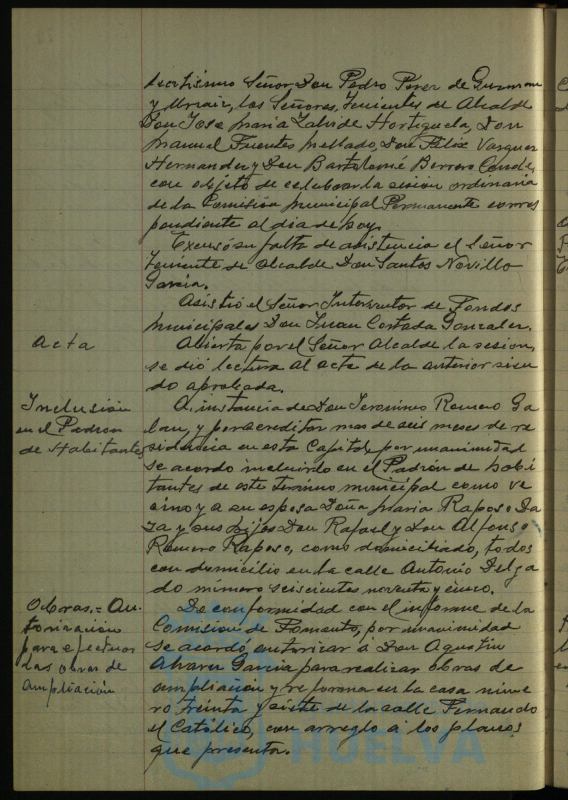 Señor Don Pedro Perez de Guzman
y Urzaiz, los Señores, Tenientes de Alcalde
Don Jose Maria Zalvide Hortiguela, Don
Manuel Fuentes Mellado, Don Felix Vazquez
Hernandez y Don Bartolomé Borrero Conde,
con objeto de celebrar la sesión ordinaria
de la Comisión Municipal Permanente corres
pondiente al dia de hoy.
Excusó su falta de asistencia el Señor
Teniente de Alcalde Don Santos Novillo
Garcia.
Asistió el Señor Interventor de Fondos
Municipales Don Juan Cortada Gonzalez.
Acta
Abierta por el Señor Alcalde la sesion,
se dió lectura al acta de la anterior sien
do aprobada.
Inclusión
en el Padrón
de Habitantes
A instancia de Don Jeronimo Romero Ga
lan, y por acreditar mas de seis meses de re
sidencia en esta Capital, por unanimidad
se acordó incluirlo en el Padrón de habi
tantes de este termino municipal como ve
cino y a su esposa Doña Maria Raposo
y sus hijos Don Rafael y Don Alfonso
Romero Raposo, como domiciliado, todos
con domicilio en la calle Antonio Delga
do número seiscientos noventa y cinco.
Obras.= Au
torización
para efectuar
las obras de
ampliación
De conformidad con el informe de la
Comisión de Fomento, por unanimidad
se acordó, autorizar á Don Agustin
Alvarez Garcia para realizar obras de
ampliación y reforma en la casa núme
ro treinta y siete de la calle Fernando
el Católico, con arreglo á los planos
que presenta.
HUELVA